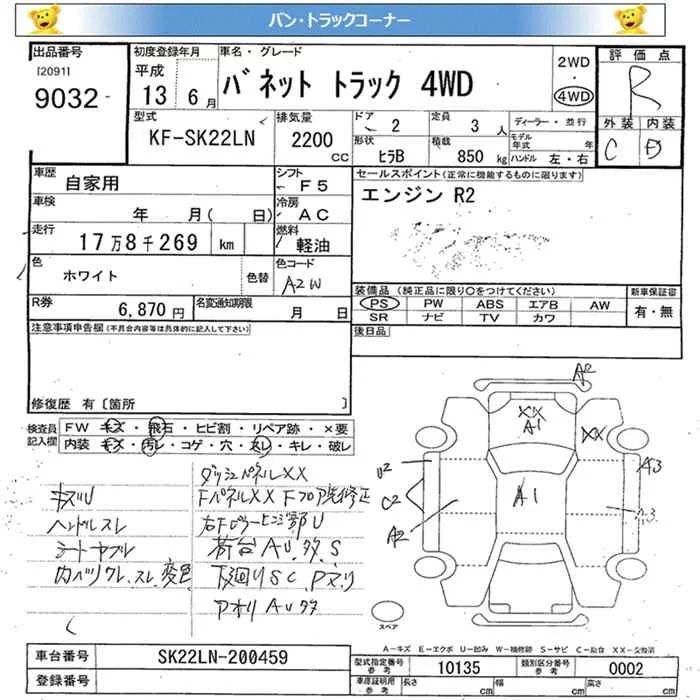 バン・トラックコーナー
出品番号
[2091]
9032
初度登録年月
平成
13 6月
車名・グレード
バネット トラック 4WD
2WD
4WD
評価点
R
外装 内装
C D
型式
KF-SK22LN
排気量
2200 CC
ドア 2
定員 3 人
形状 ヒラB
積載 850 kg
ディーラー・並行
モデル年式 年
ハンドル 左・右
車歴 自家用
シフト F5
セールスポイント(正常に機能するものに限ります)
エンジン R2
車検 年 月( 日)
冷房 AC
走行 17万8千269 km
燃料 軽油
色 ホワイト 色替
色コード A2W
装備品(純正品に限り○をつけてください)
PS PW ABS エアB AW
SR ナビ TV カワ
新車保証書
有・無
R券 6,870 円
名変通知期限 月 日
後日品
注意事項申告欄(不具合内容等は具体的に記入して下さい)
修復歴 有〔箇所 〕
検査員記入欄
FW キズ・飛石・ヒビ割・リペア跡・×要
内装 キズ・汚レ・コゲ・穴・スレ・キレ・破レ
ダッシュパネルXX
キズU
FパネルXX Fフロア先修正
ハンドルスレ
右Fピラーヒンジ部U
シートヤブレ
荷台 AU.タタ.S
内ハリワレ.スレ.変色
下廻りSC.Pヌリ
アオリ AUタタ
A2
XX
A1
XX
U2
A3
C2
A1
A2
A3
スペア
A－キズ E－エクボ U－凹み W－補修跡 S－サビ C－腐蝕 XX－交換済
車台番号 SK22LN-200459
登録番号
型式指定番号 参考 10135
類別区分番号 参考 0002
車庫証明用 参考 長さ cm 幅 cm 高さ cm